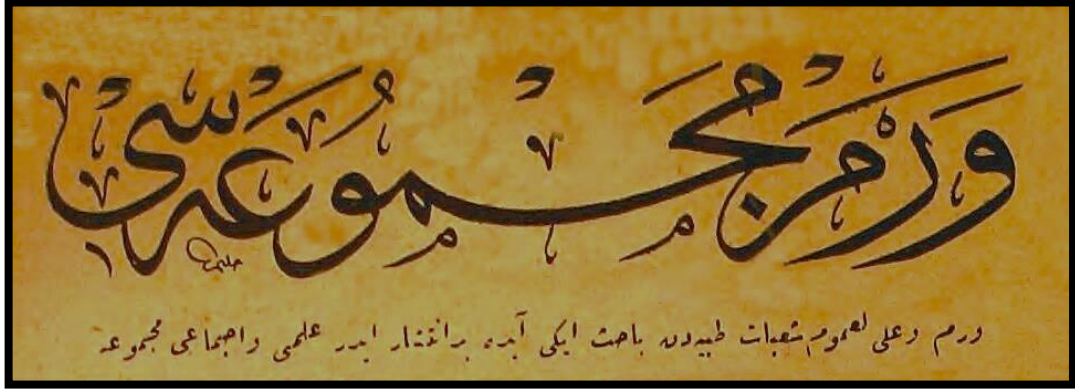 ورم مجموعه سی
حلیم
ورم وعلی العموم شعبات طبیه‌دن باحث ایکی آیده بر انتشار ایدر علمی و اجتماعی مجموعه